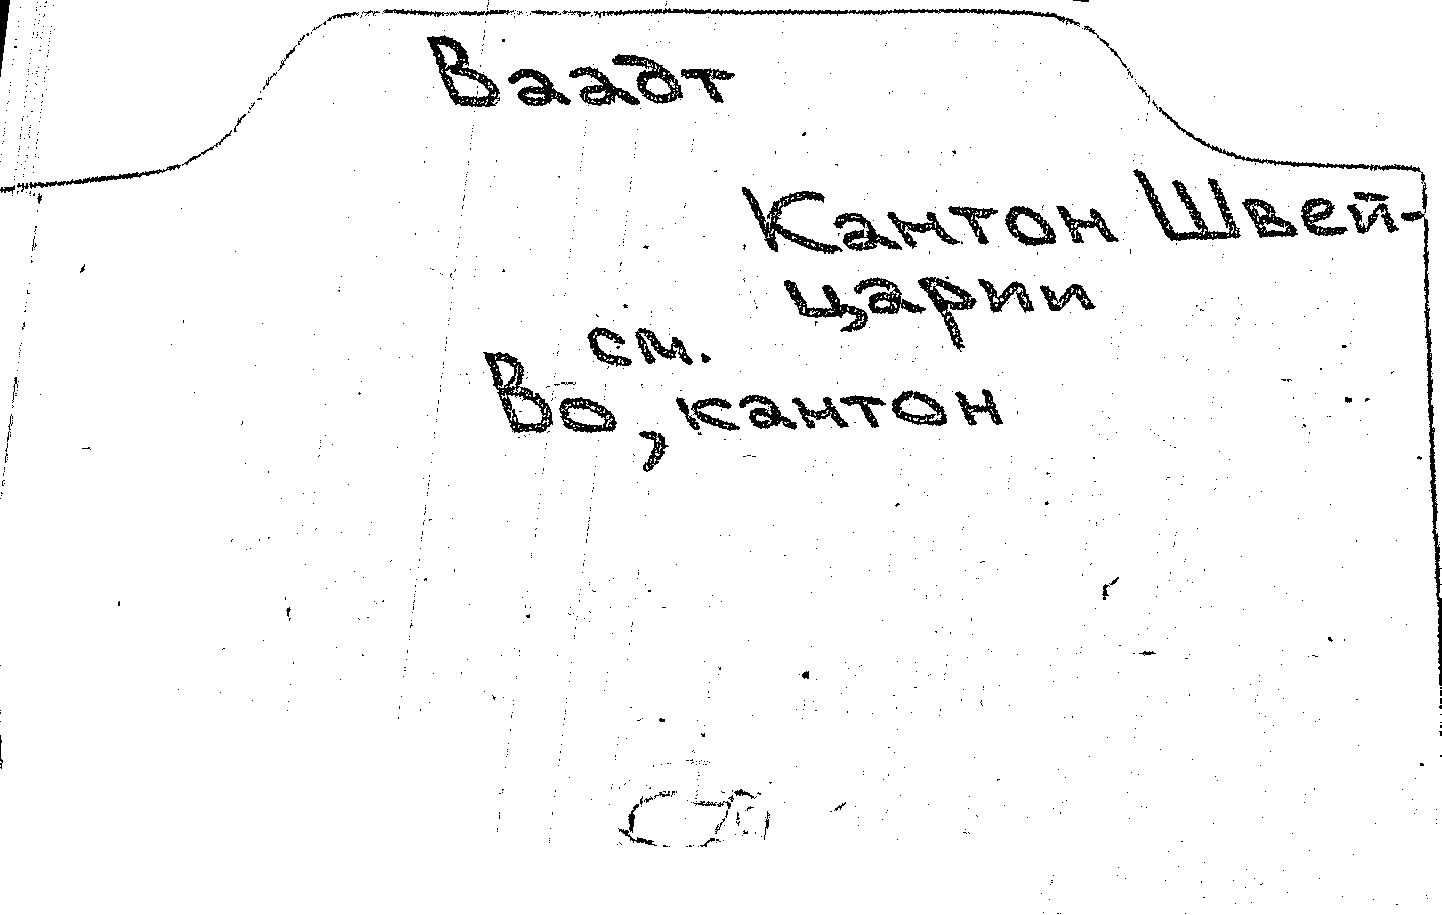 Ваадт
Кантон Швей-
царии
см.
Во, кантон